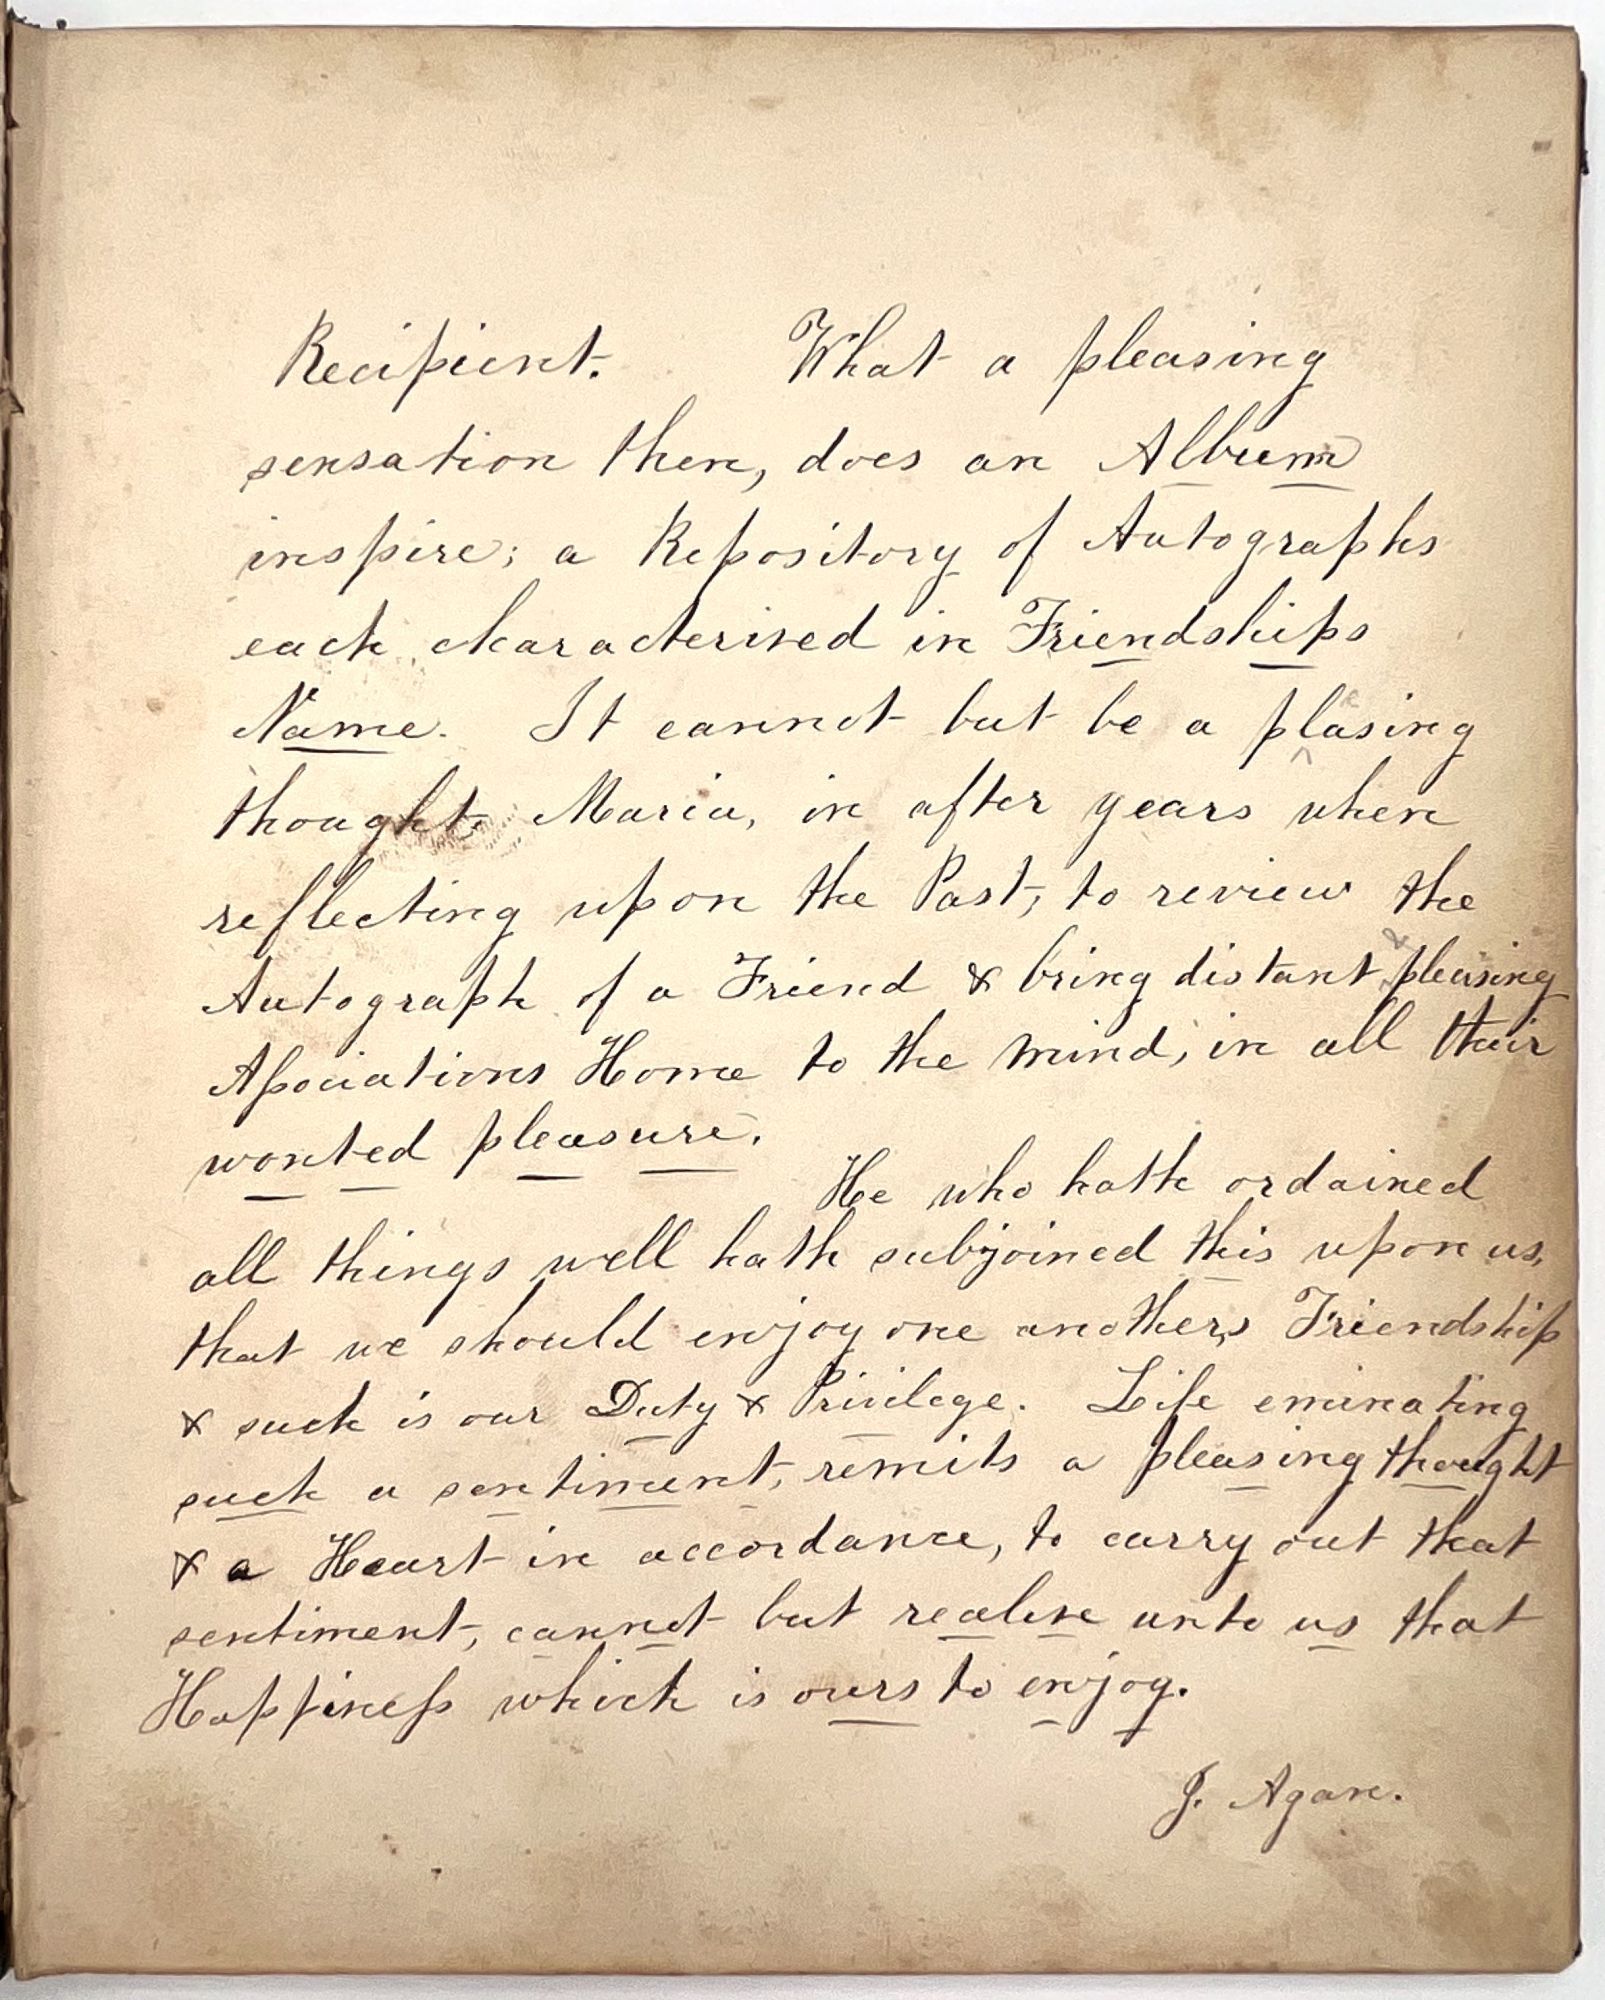 Recipient. What a pleasing
sensation then, does an Album
inspire; a Repository of Autographs
each characterised in Friendships
Name. It cannot but be a pleasing
thought, Maria, in after years when
reflecting upon the Past, to review the
Autograph of a Friend & bring distant & pleasing
Aſsociations Home to the mind, in all their
wonted pleasure.
He who hath ordained
all things well hath subjoined this upon us,
that we should enjoy one anothers Friendship
& such is our Duty & Privilege. Life eminating
such a sentiment, remits a pleasing thought
& a Heart in accordance, to carry out that
sentiment, cannot but realise unto us that
Happineſs which is ours to enjoy.
J. Agan.